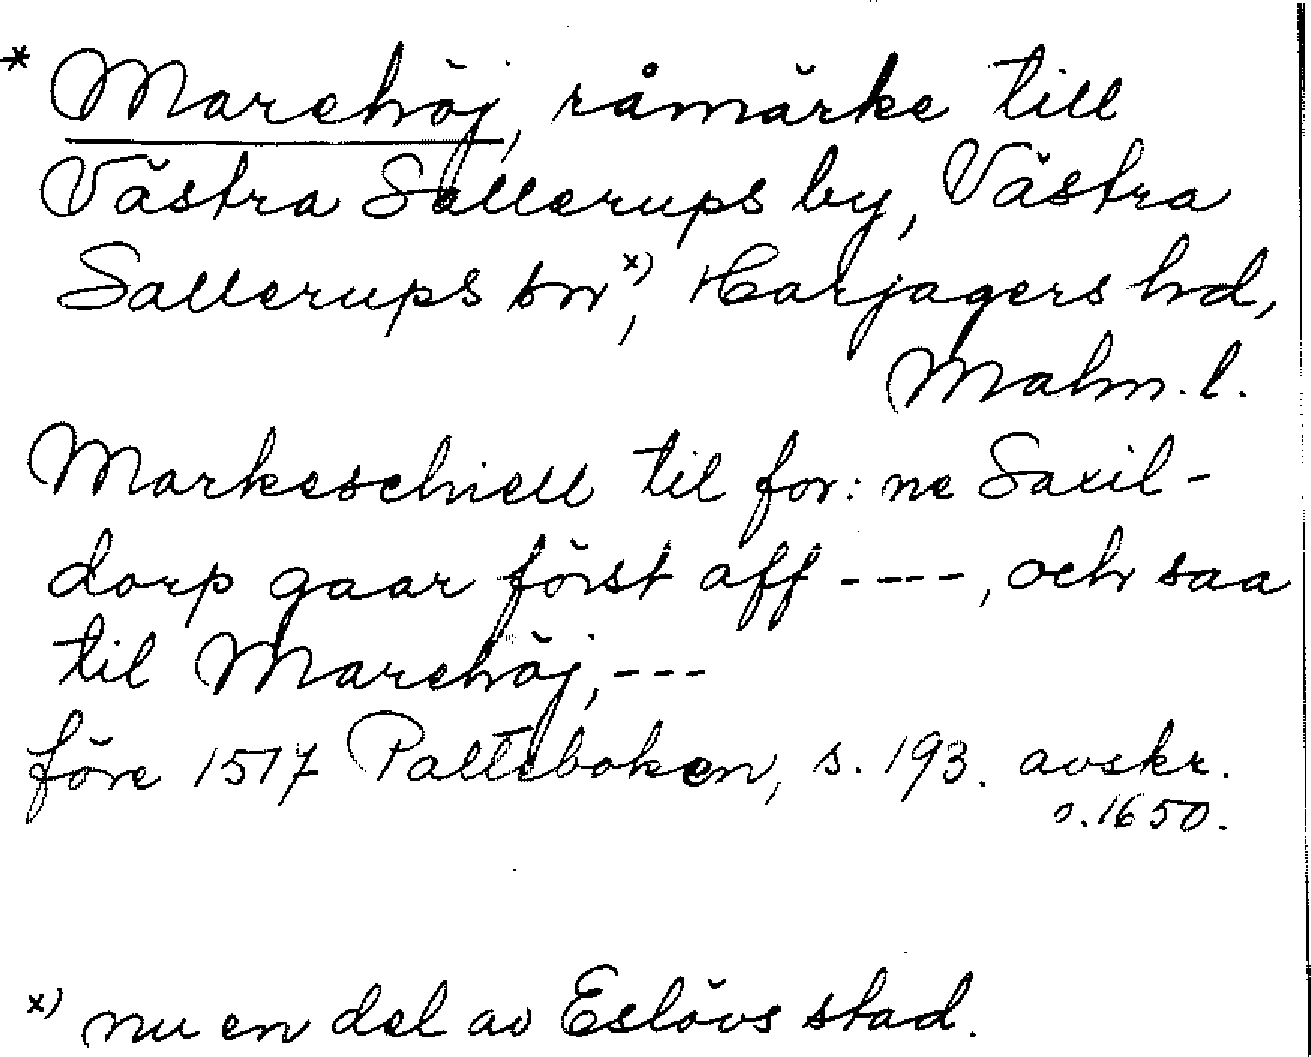 * Marehöj, råmärke till
Västra Sallerups by, Västra
Sallerups sn x), Harjagers hd,
Malm. l.
Markeschiell til for: ne Saxil-
dorp gaar först aff ----, och saa
til Marehöj, ---
före 1517 Palteboken, s. 193. avskr.
o. 1650.
x) nu en del av Eslövs stad.